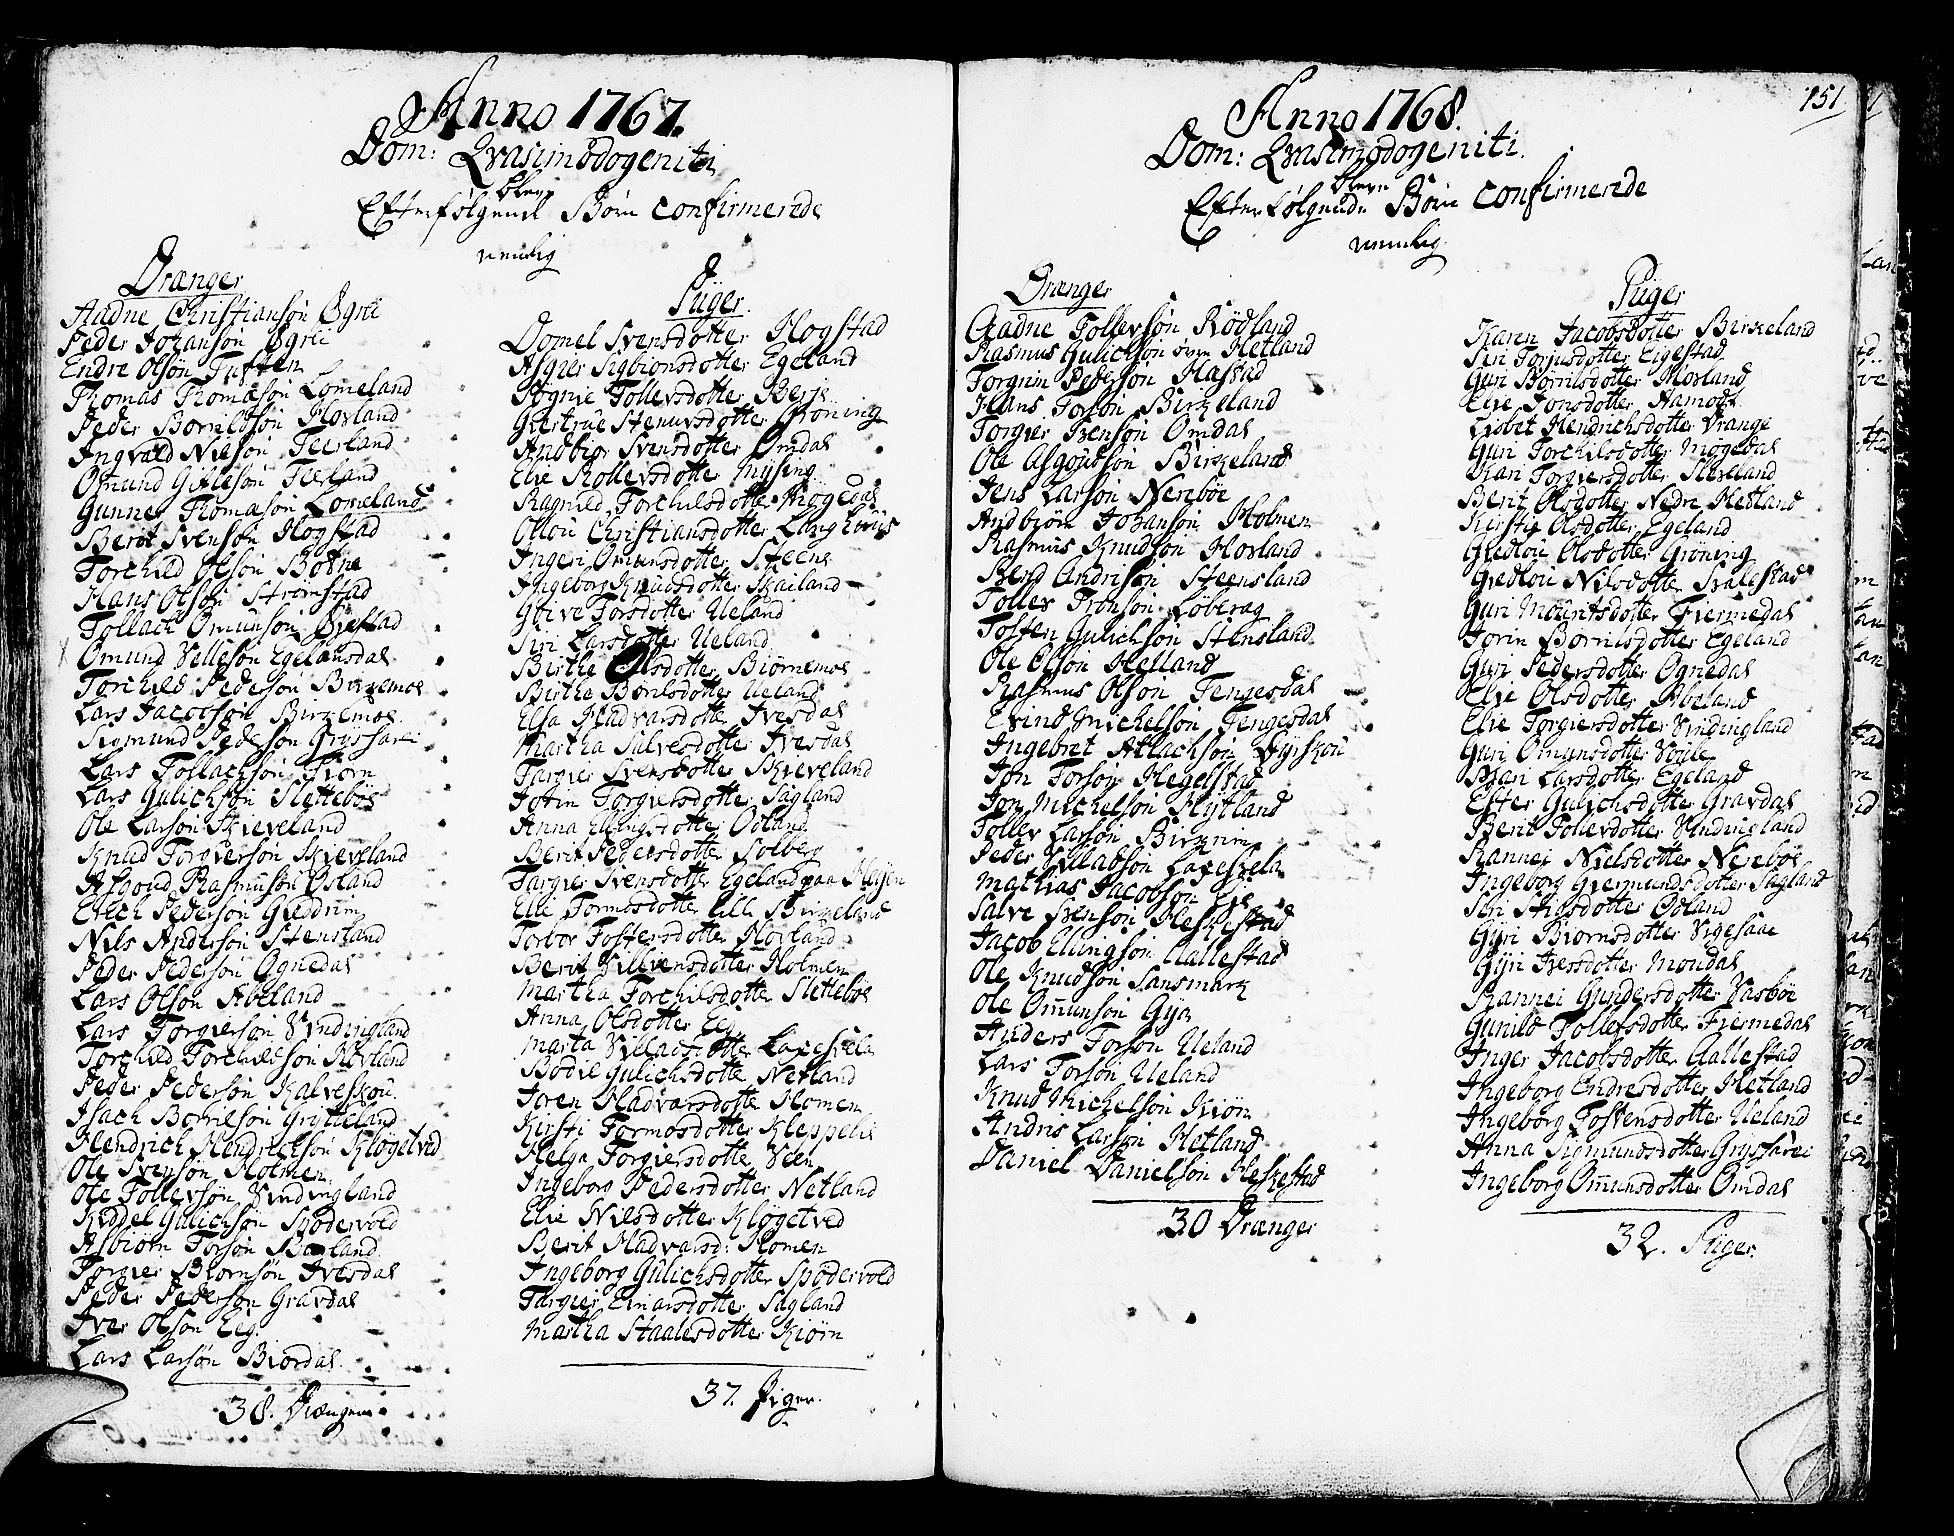 Anno 1767.
Dom: Qvasimodogeniti
bleve
Efterfølgende Børn confirmerede
nemlig
Drænger
Aadne Christiansøn Øgrei
Peder Johansøn Øgrei
Endre Olsøn Tuften
Thomas Thomæsøn Lomeland
Peder Bornildsøn Hovland
Ingvald Nielsøn Feeland
Omund Gitlesøn Feeland
Gunner Thomæsøn Lomeland
Berot Svensøn Hogstad
Torchild Olsøn Botne
Hans Olsøn Strømstad
Tollach Omunsøn Øyestad
Omund Vellesøn Egelandsdal
Torchild Pedersøn Birkemoe
Lars Jacobsøn Birkemoe
Sigmund Pedersøn Gryssarei
Lars Tollachsøn Tiørn
Lars Gulichsøn Slettebøe
Ole Larsøn Skieveland
Knud Torgiersøn Skieveland
Asgoud Rasmusøn Øsland
Erech Pedersøn Gieddrim
Nils Andersøn Stensland
Peder Pedersøn Ognedal
Lars Olsøn Abeland
Lars Torgiersøn Vindingland
Torchild Torchildsøn Hovland
Peder Pedersøn Kalveskou
Isach Bornilsøn Grytteland
Hendrich Hendrechsøn Kløgetved
Ole Svensøn Holmen
Ole Tollevsøn Vindingland
Kiddel Gulichsøn Spødervold
Asbiørn Torsøn Bueland
Torgier Biørnsøn Ivesdal
Peder Pedersøn Gravdal
Iver Olsøn Eeg
Lars Larsøn Biordal
38. Drænger
Piger
Domel Svensdotter Hogstad
Asgier Sigbiønsdotter Egeland
Sognie Tollevsdotter Berje
Giertrue Stenuvsdotter Grøning
Andbiør Svensdotter Omdal
Elie Rollevsdotter Mysing
Ragnild Torchilsdotter Mogedal
Ollou Christiansdotter Langhuus
Ingeri Omunsdotter Steene
Ingeborg Knudsdotter Skailand
Goive Torsdotter Ueland
Siri Larsdotter Ueland
Birthe Olsdotter Biørnemoe
Birthe Bornilsdotter Ueland
Elsa Hadvarsdotter Ivesdal
Martha Salvesdotter Ivesdal
Targier Svensdotter Skieveland
Jorin Torgiersdotter Sagland
Anna Ellingsdotter Ødland
Berit Pedersdotter Solberg
Targier Svensdotter Egeland paa Heyen
Elli Tormosdotter lille Birkeland
Torbor Tostensdotter Hovland
Berit Villumsdotter Holmen
Martha Torchilsdotter Slettebøe
Anna Olsdotter Eeg
Marta Villadsdotter Laxesvela
Bodil Gulichsdotter Netland
Joren Hadvarsdotter Homen
Kirsti Tormosdotter Kleppelie
Helga Torgiersdotter Veen
Ingeborg Pedersdotter Netland
Elie Nilsdotter Kløgetved
Berit Hadvarsd: Homen
Ingeborg Gulichsdotter Spødervold
Targier Einarsdotter Sagland
Martha Staalesdotter Kiørn
37. Piger.
151
Anno 1768.
Dom: Qvasimodogeniti.
bleve
Efterfølgende Børn confirmerede
nemlig
Drænger
Aadne Tollevsøn Rødland
Rasmus Gulichsøn øvre Hetland
Torgrim Pedersøn Hastad
Hans Torsøn Birkeland
Torgier Svensøn Omdal
Ole Asgoutsøn Birkeland
Jens Larsøn Nesebøe
Andbiørn Johansøn Holmen
Rasmus Knudsøn Hovland
Bend Andrisøn Steensland
Tollev Tronsøn Løberag
Tosten Gulichsøn Stensland
Ole Olsøn Helland
Rasmus Olsøn Tengesdal
Evind Michelsøn Tengesdal
Ingebret Atlachsøn Dyrskou
Jon Torsøn Hegelstad
Jon Michelsøn Hytland
Tollev Larsøn Birkrim
Peder Villadsøn Laxesvela
Mathias Jacobsøn Eie
Salve Svensøn Heskestad
Jacob Ellingsøn Aallestad
Ole Knudsøn Sansmark
Ole Omunsøn Gya
Anders Torsøn Ueland
Lars Torsøn Ueland
Knud Michelsøn Kiørn
Andris Larsøn Hetland
Daniel Danielsøn Heskestad
30 Drænger
Piger
Karen Jacobsdotter Birkeland
Siri Torjusdotter Eigestad
Guri Bornilsdotter Hovland
Elie Jonsdotter Aamodt
Lisbet Hendrichsdotter Vrange
Guri Torchilsdotter Mogedal
Kari Torgiersdotter Skieland
Berit Olsdotter Nedre Hetland
Kirsti Olsdotter Egeland
Giedlou Olsdotter Grøning
Giedlou Nilsdotter Svalestad
Guri Mauritsdotter Fiermedal
Jorin Bornilsdotter Egeland
Guri Pedersdotter Ognedal
Elie Olsdotter Abeland
Elie Torgiersdotter Vindingland
Guri Omunsdotter
Mari Larsdotter Egeland
Ester Gulichsdotter Gravdal
Berit Tollevdotter Vindingland
Rannei Nielsdotter Nesebøe
Ingeborg Giermundsdotter Sagland
Siri Stigsdotter Ødland
Gyri Biørnsdotter Vigesaae
Gyri Iversdotter Moudal
Rannei Gundersdotter Vasbøe
Gunild Tollefsdotter Fiermedal
Inger Jacobsdotter Aallestad
Ingeborg Endresdotter Hetland
Ingeborg Tostensdotter Ueland
Anna Sigmundsdotter Gryssarei
Ingeborg Omunsdotter Omdal
32. Piger.